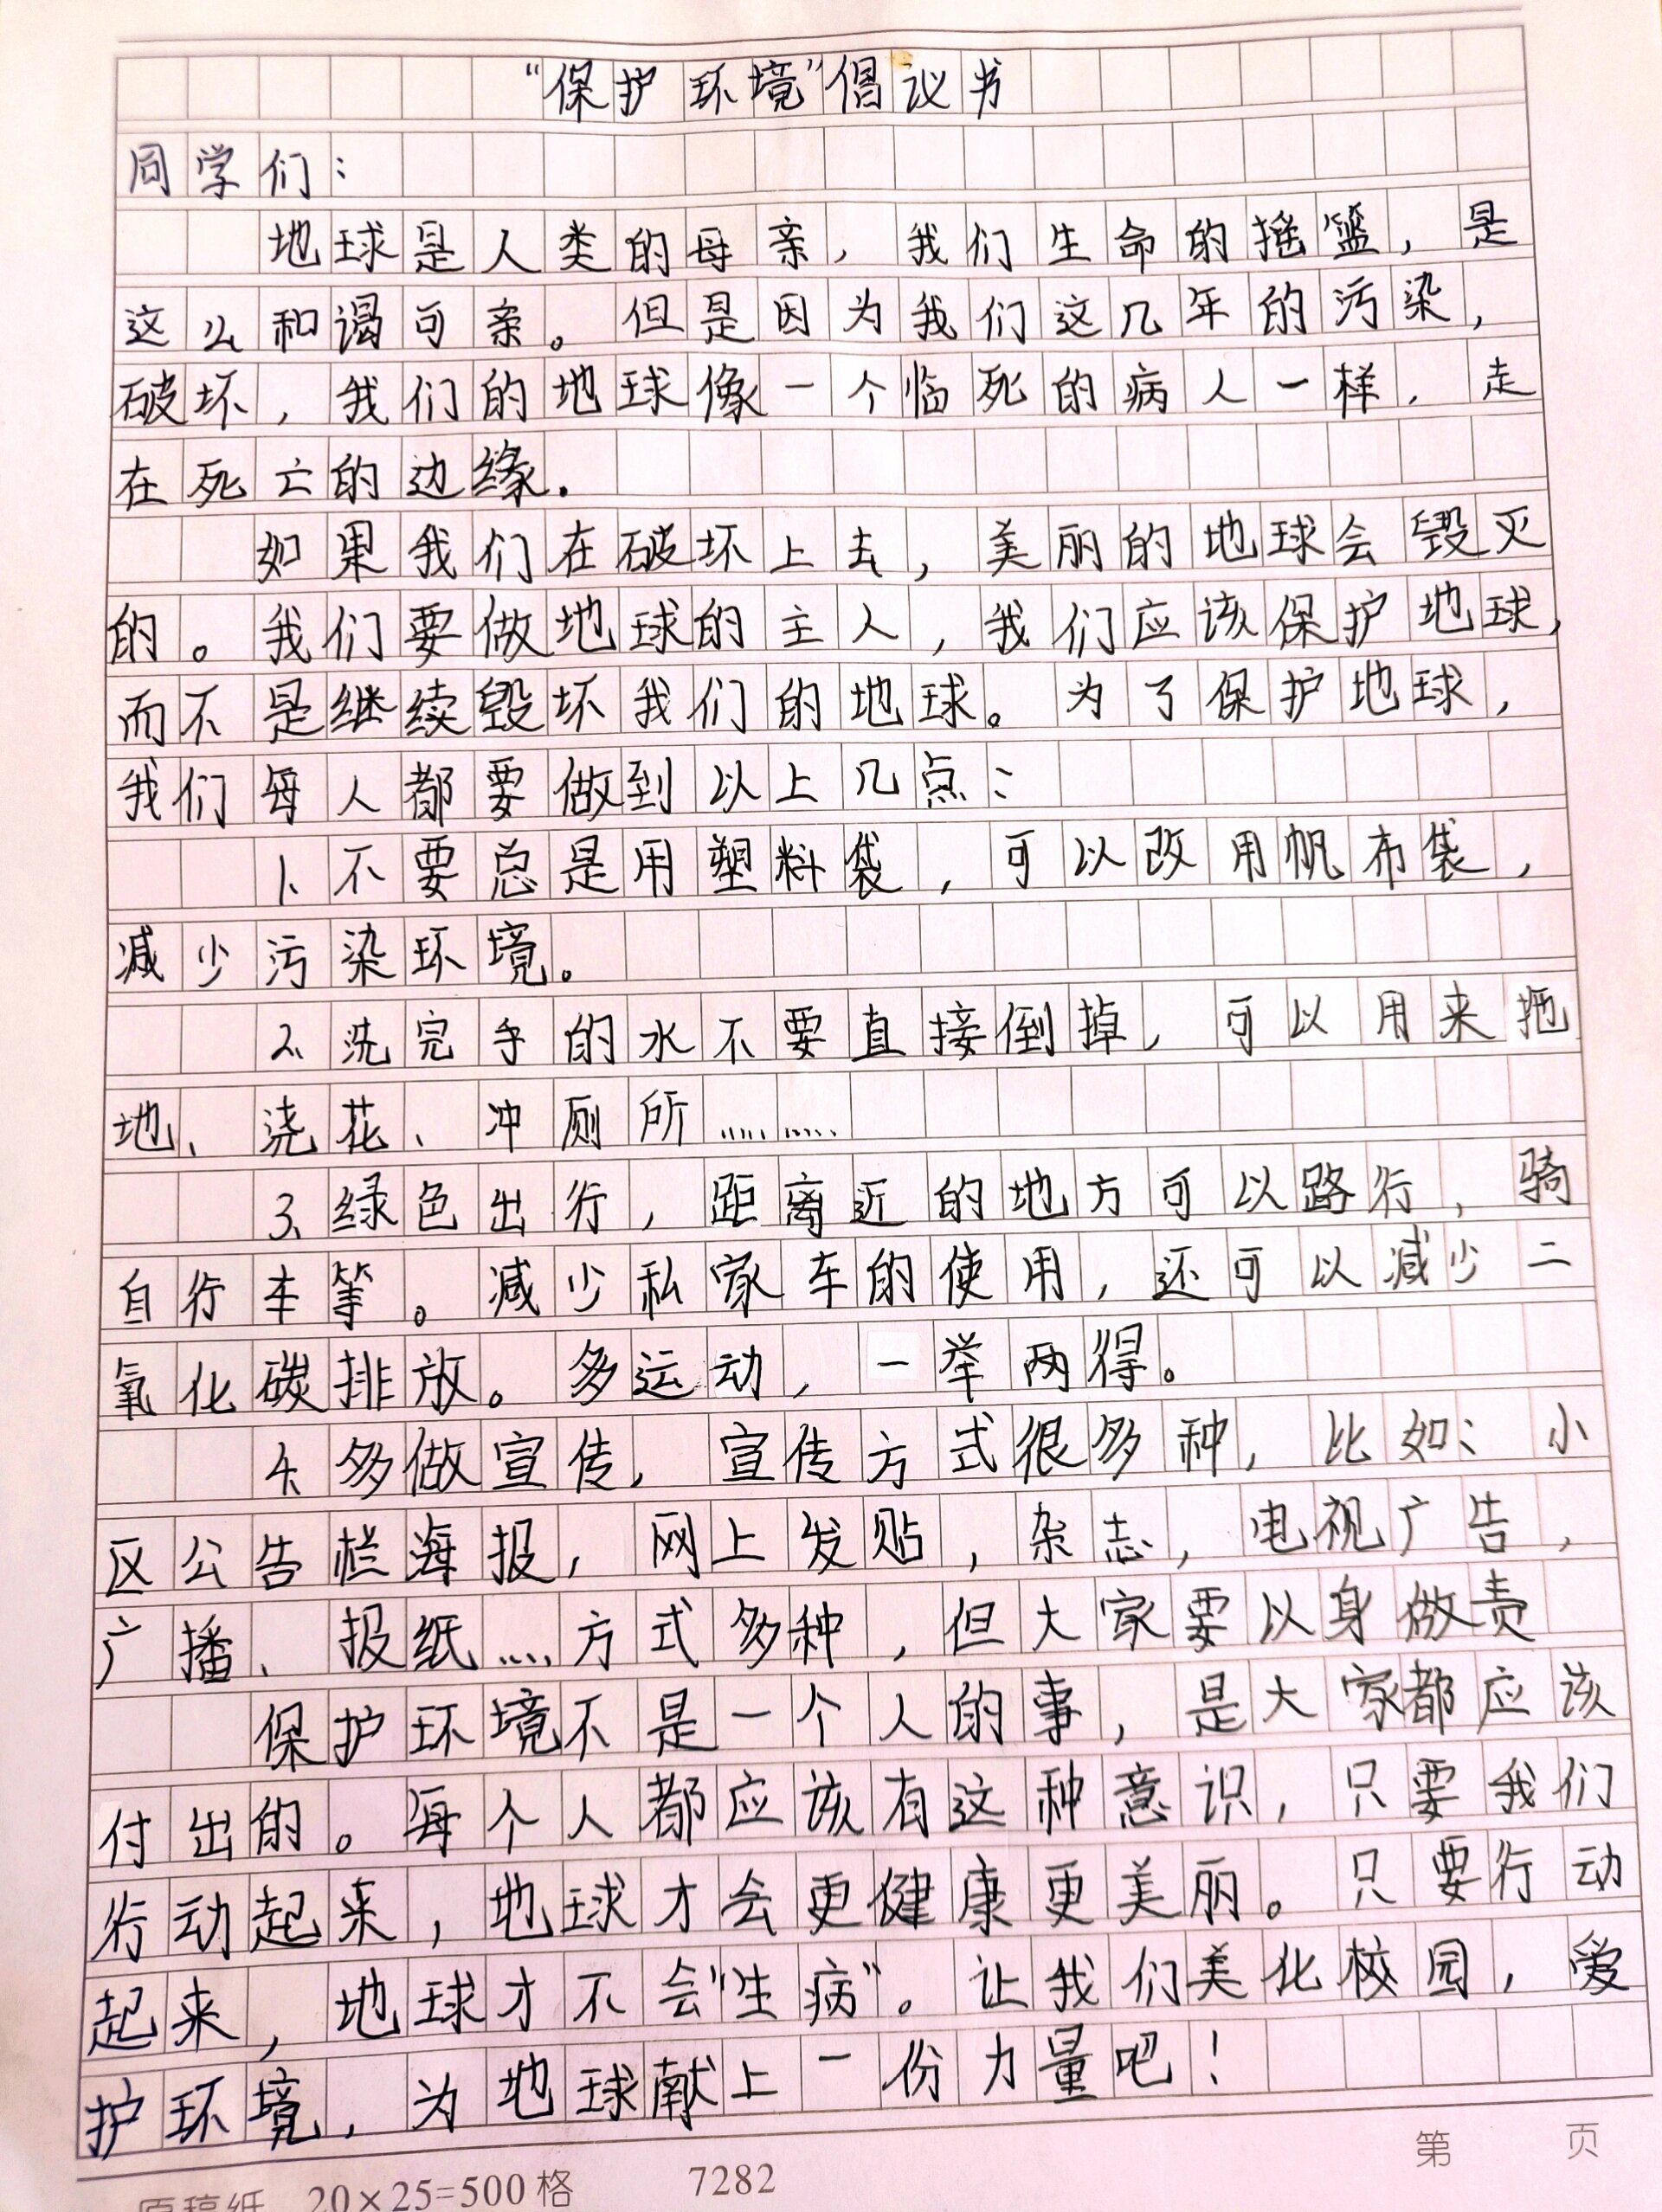 “保护环境”倡议书
同学们：
地球是人类的母亲，我们生命的摇篮，是
这么和谒可亲。但是因为我们这几年的污染，
破坏，我们的地球像一个临死的病人一样，走
在死亡的边缘.
如果我们在破坏上去，美丽的地球会毁灭
的。我们要做地球的主人，我们应该保护地球，
而不是继续毁坏我们的地球。为了保护地球，
我们每人都要做到以上几点：
1、不要总是用塑料袋，可以改用帆布袋，
减少污染环境。
2、洗完手的水不要直接倒掉，可以用来拖
地、浇花、冲厕所……
3、绿色出行，距离近的地方可以路行，骑
自行车等。减少私家车的使用，还可以减少二
氧化碳排放。多运动，一举两得。
4、多做宣传，宣传方式很多种，比如：小
区公告栏海报，网上发贴，杂志，电视广告，
广播、报纸…方式多种，但大家要以身做责
保护环境不是一个人的事，是大家都应该
付出的。每个人都应该有这种意识，只要我们
行动起来，地球才会更健康更美丽。只要行动
起来，地球才不会“生病”。让我们美化校园，爱
护环境，为地球献上一份力量吧！
第 页
原稿纸 20×25=500格 7282